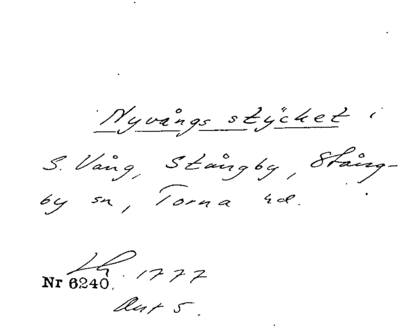 Nyvångs stycket i
S. Vång, Stångby, Stång-
by sn, Torna hd.
Lh 1777
Nr 6240.
Akt 5.